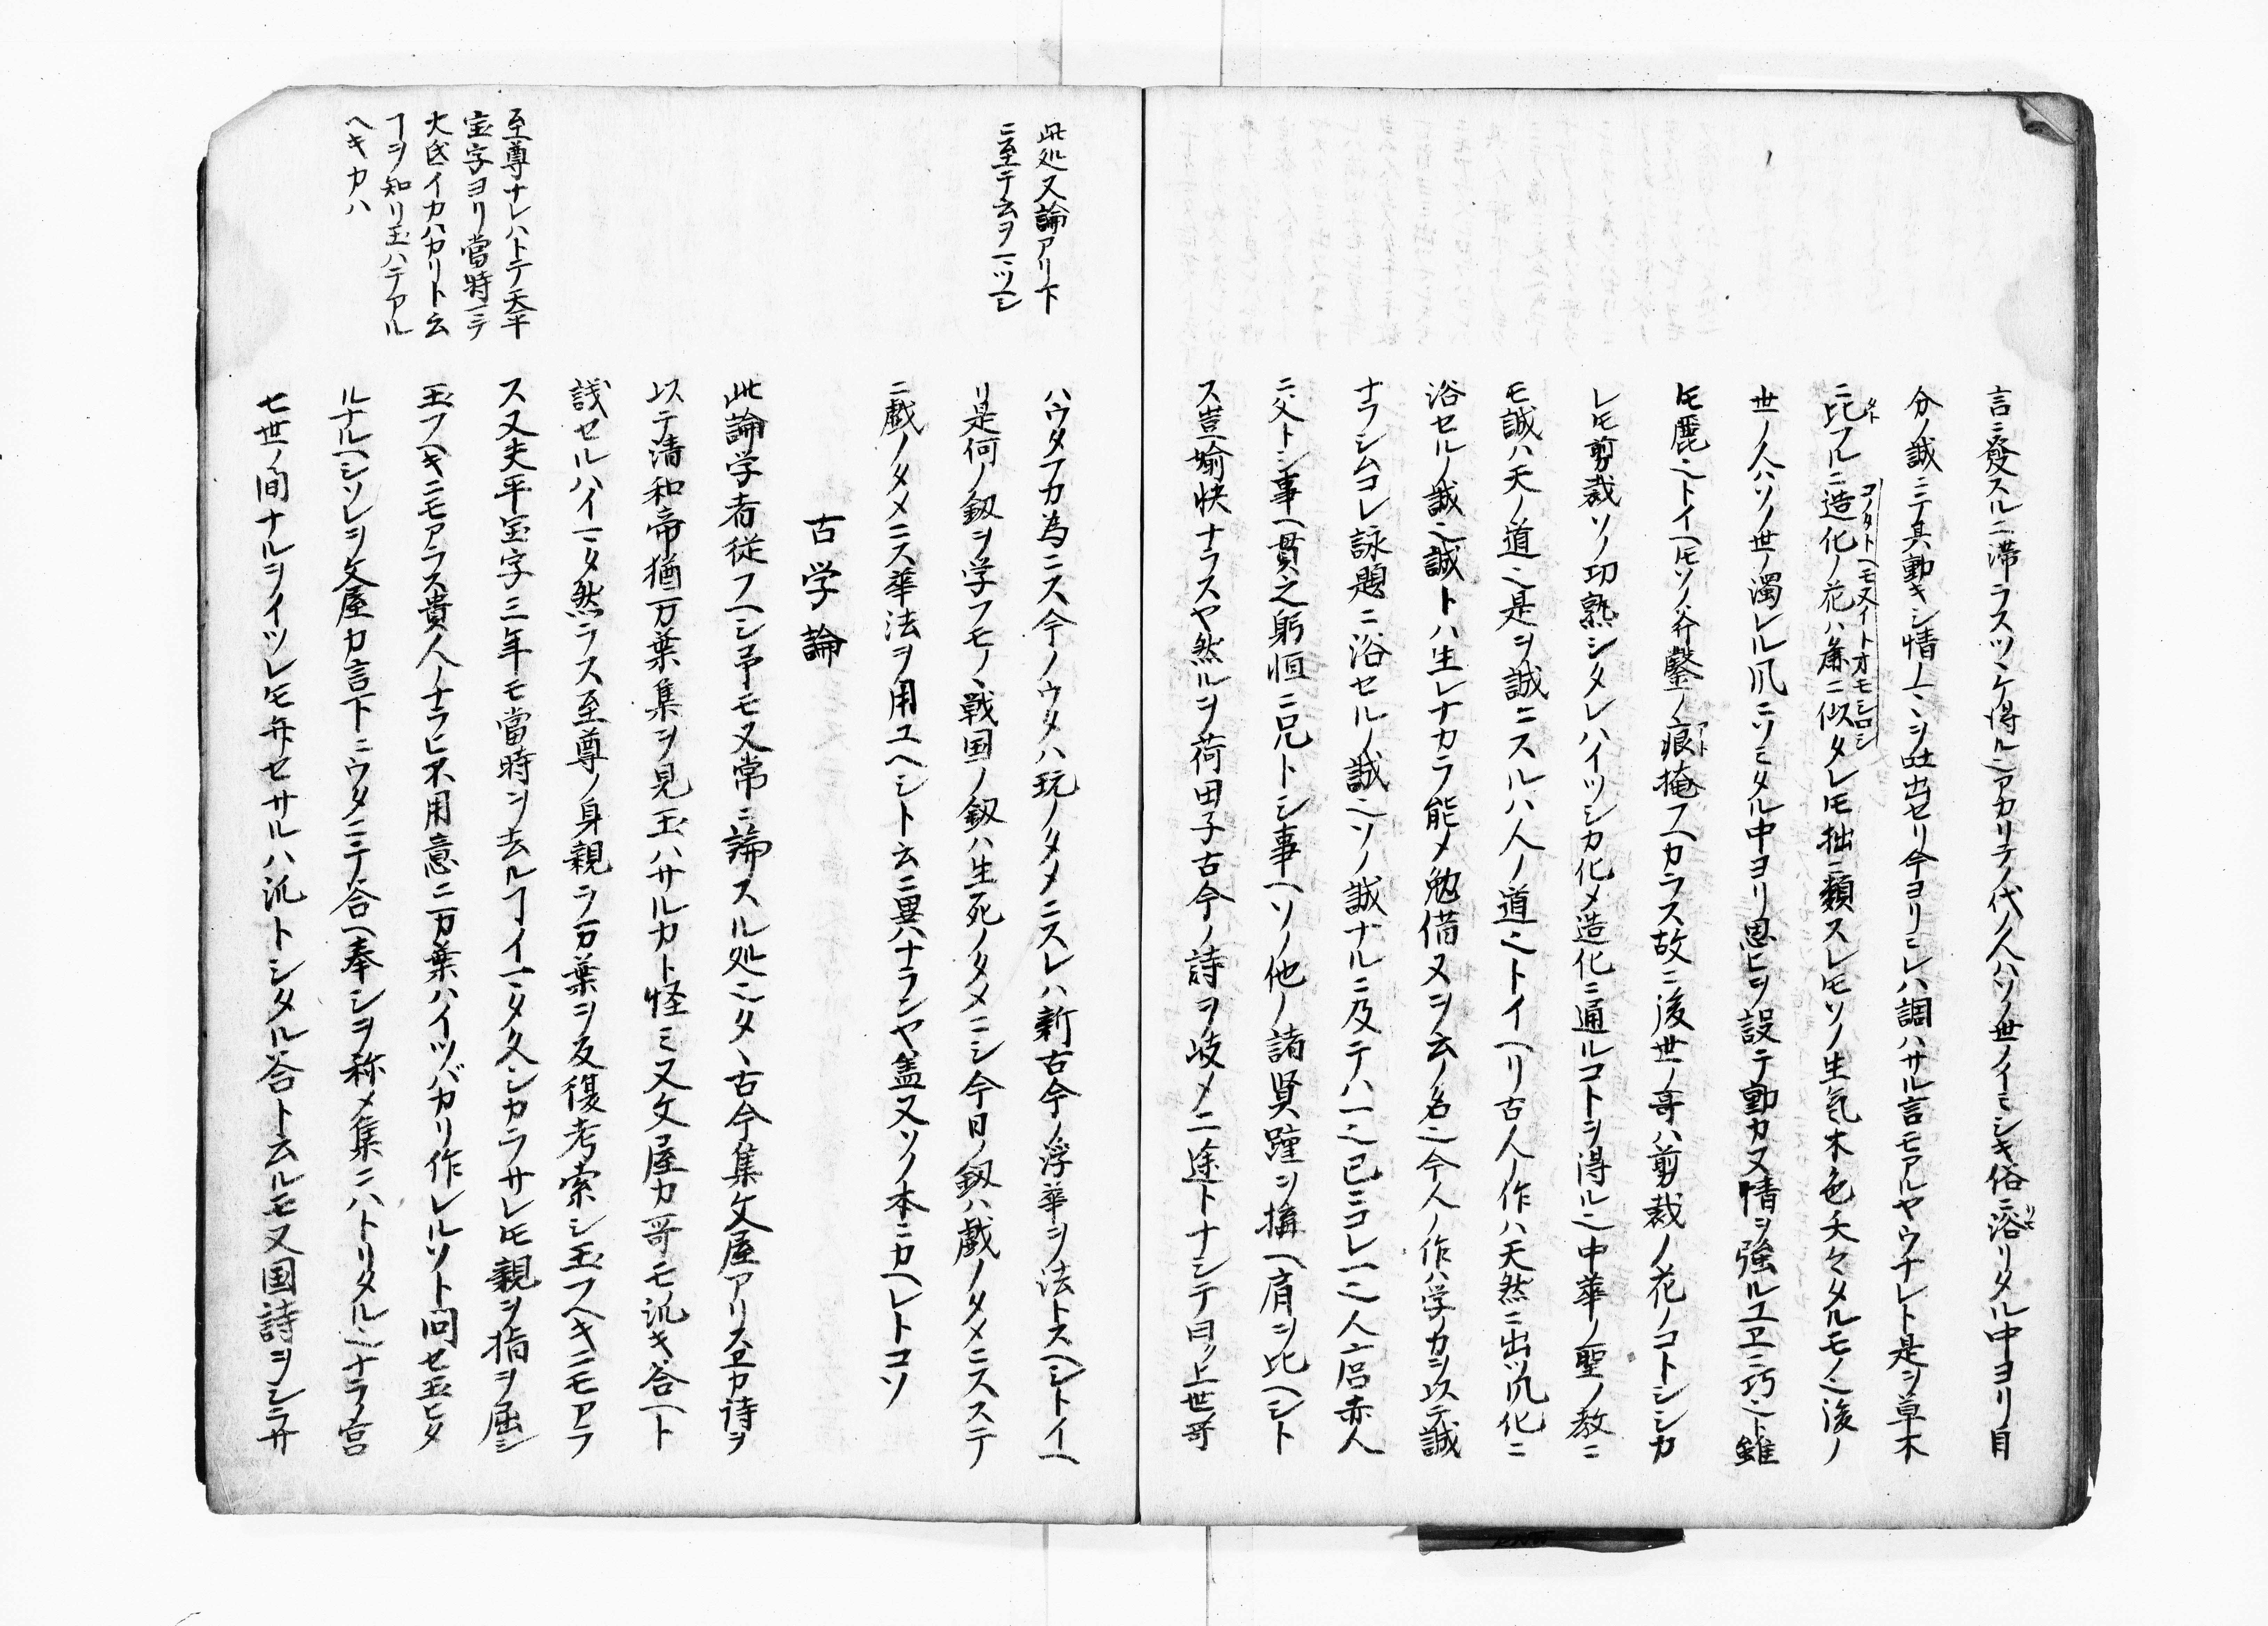 言ニ發スルニ滞ラスツヽケ得ルアカリテノ代ノ人ハソノ世ノイミシキ俗ニ浴リタル中ヨリ自
分ノ誠ニテ其動キシ情ノミヲ吐出セリ今ヨリミレハ調ハサル言モアルヤウナレト是ヲ草木
コノタトヘモ又イトオモシロシ
ニ比フルニ造化ノ花ハ麁ニ似タレ𪜈拙ニ類スレ𪜈ソノ生気木色夭々タルモノ也後ノ
世ノ人ハソノ世ノ濁レル風ニソミタル中ヨリ思ヒヲ設テ動カヌ情ヲ強ルユヱニ巧也ト雖
𪜈麁也トイヘ𪜈ソノ斧鑿ノ痕掩フヘカラス故ニ後世ノ哥ハ剪裁ノ花ノコトシシカ
レ𪜈剪裁ソノ功熟シタレハイツシカ化メ造化ニ通ルコトヲ得ル也中華ノ聖ノ教ニ
モ誠ハ天ノ道也是ヲ誠ニスルハ人ノ道也トイヘリ古人ノ作ハ天然ニ出ツ風化ニ
浴セルノ誠也誠トハ生レナカラ能メ勉借ヌヲ云ノ名也今人ノ作ハ学ノカヲ以テ誠
ナラシムコレ詠題ニ浴セルノ誠也ソノ誠ナルニ及テハ一也已ニコレ一也人丸赤人
ニ父トシ事ヘ貫之躬恒ニ兄トシ事ヘソノ他ノ諸賢踵ヲ搆ヘ肩ヲ比ヘシト
ス豈愉快ナラスヤ然ルヲ荷田子古今ノ詩ヲ岐メ二途トナシテ曰ク上世哥
此処又論アリ下
ニ至テ云ヲマツヘシ
ハウタフカ為ニス今ノウタハ玩ノタメニスレハ新古今ノ浮華ヲ法トスヘシトイヘ
リ是何ノ釼ヲ学フモノヽ戦国ノ釼ハ生死ノタメニシ今日ノ釼ハ戯ノタメニステ
ニ戯ノタメニス華法ヲ用ユヘシト云ニ異ハナランヤ盖又ソノ本ニカヘレトコソ
古学論
此論学者従フヘシ予モ又常ニ論スル処也タヽ古今集文屋アリスヱカ詩ヲ
以テ清和帝猶万葉集ヲ見玉ハサルカト怪ミ又文屋カ哥モ汎キ答ヘト
議セルハイマタ然ラス至尊ノ身親ラ万葉ヲ反復考索シ玉フヘキニモアラ
ス又夫平宝字三年モ當時ヲ去ルヿイマタ久シカラサレ𪜈親ヲ指ヲ屈シ
玉フヘキニモアラス貴人ノナラヒ不用意ニ万葉ハイツバカリ作レルソト問セ玉ヒタ
ルナルヘシソレヲ文屋カ言下ニウタニテ答ヘ奉シヲ称メ集ニハトリタル也ナラノ宮
七世ノ間ナルヲイツレ𪜈弁セサルハ汎トシタル答ト云ルモ又国詩ヲシラサ
至尊ナレハトテ天平
宝字ヨリ當時マテ
大氐イカハカリト云
ヿヲ知リ玉ハテアル
ヘキカハ